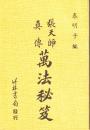 泰明子編
張天師
真傳
萬法秘笈
竹林書局發行